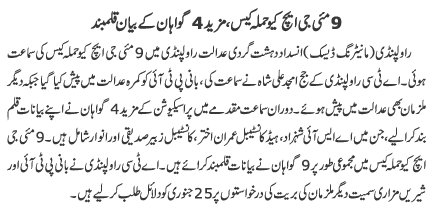 9 مئی جی ایچ کیو حملہ کیس، مزید 4 گواہان کے بیان قلمبند
راولپنڈی (مانیٹرنگ ڈیسک) انسداد دہشت گردی عدالت راولپنڈی میں 9 مئی جی ایچ کیو حملہ کیس کی سماعت
ہوئی۔ اے ٹی سی راولپنڈی کے جج امجد علی شاہ نے سماعت کی، بانی پی ٹی آئی کو کمرہ عدالت میں پیش کیا گیا جبکہ دیگر
ملزمان بھی عدالت میں پیش ہوئے۔ دوران سماعت مقدمے میں پراسیکیوشن کے مزید 4 گواہان نے اپنے بیانات قلم
بند کرا لیے، جن میں اے ایس آئی شہزاد، ہیڈ کانسٹیبل عمران اختر، کانسٹیبل زبیر صدیقی اور انوار شامل ہیں۔ 9 مئی جی
ایچ کیو حملہ کیس میں مجموعی طور پر 9 گواہان نے بیانات قلمبند کرائے ہیں۔ اے ٹی سی راولپنڈی نے بانی پی ٹی آئی اور
شیریں مزاری سمیت دیگر ملزمان کی بریت کی درخواستوں پر 25 جنوری کو دلائل طلب کر لیے ہیں۔